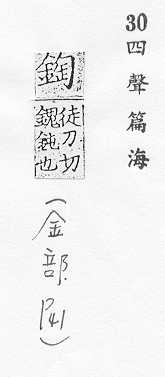 30四聲篇海
鋾
徒刀切
鈍也
(金部.P41)